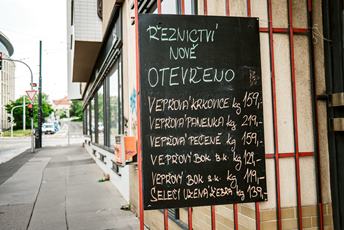 ŘEZNICTVÍ
NOVĚ
OTEVŘENO
VEPŘOVÁ KRKOVICE kg 159,-
VEPŘOVÁ PANENKA kg 219,-
VEPŘOVÁ PEČENĚ kg 159,-
VEPŘOVÝ BOK B.K. kg 129,-
VEPŘOVÝ BOK S.K. kg 119,-
SELECÍ UZENÁ ŽEBRA kg 139,-